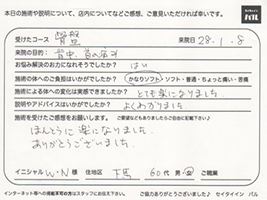 本日の施術や説明について、店内についてなどご感想、ご意見いただければ幸いです。
パル
受けたコース 骨盤 来院日 28.1.8
来院の目的: 背中、首の痛み
お悩み解決のお力になれそうでしたか? はい
施術の体へのご負担はいかがでしたか? かなりソフト・ソフト・普通・ちょっと痛い・苦痛
施術による体への変化は実感できましたか? とても楽になりました
説明やアドバイスはいかがでしたか? よくわかりました
施術を受けたご感想をお願いします。
ほんとうに楽になりました
ありがとうございました
イニシャル W・N 様 お住地区 下馬 60代 男・女 ご職業
インターネット等への掲載不可の方はスタッフにお伝え下さい。 ご協力ありがとうございました♪ セイタイイン パル